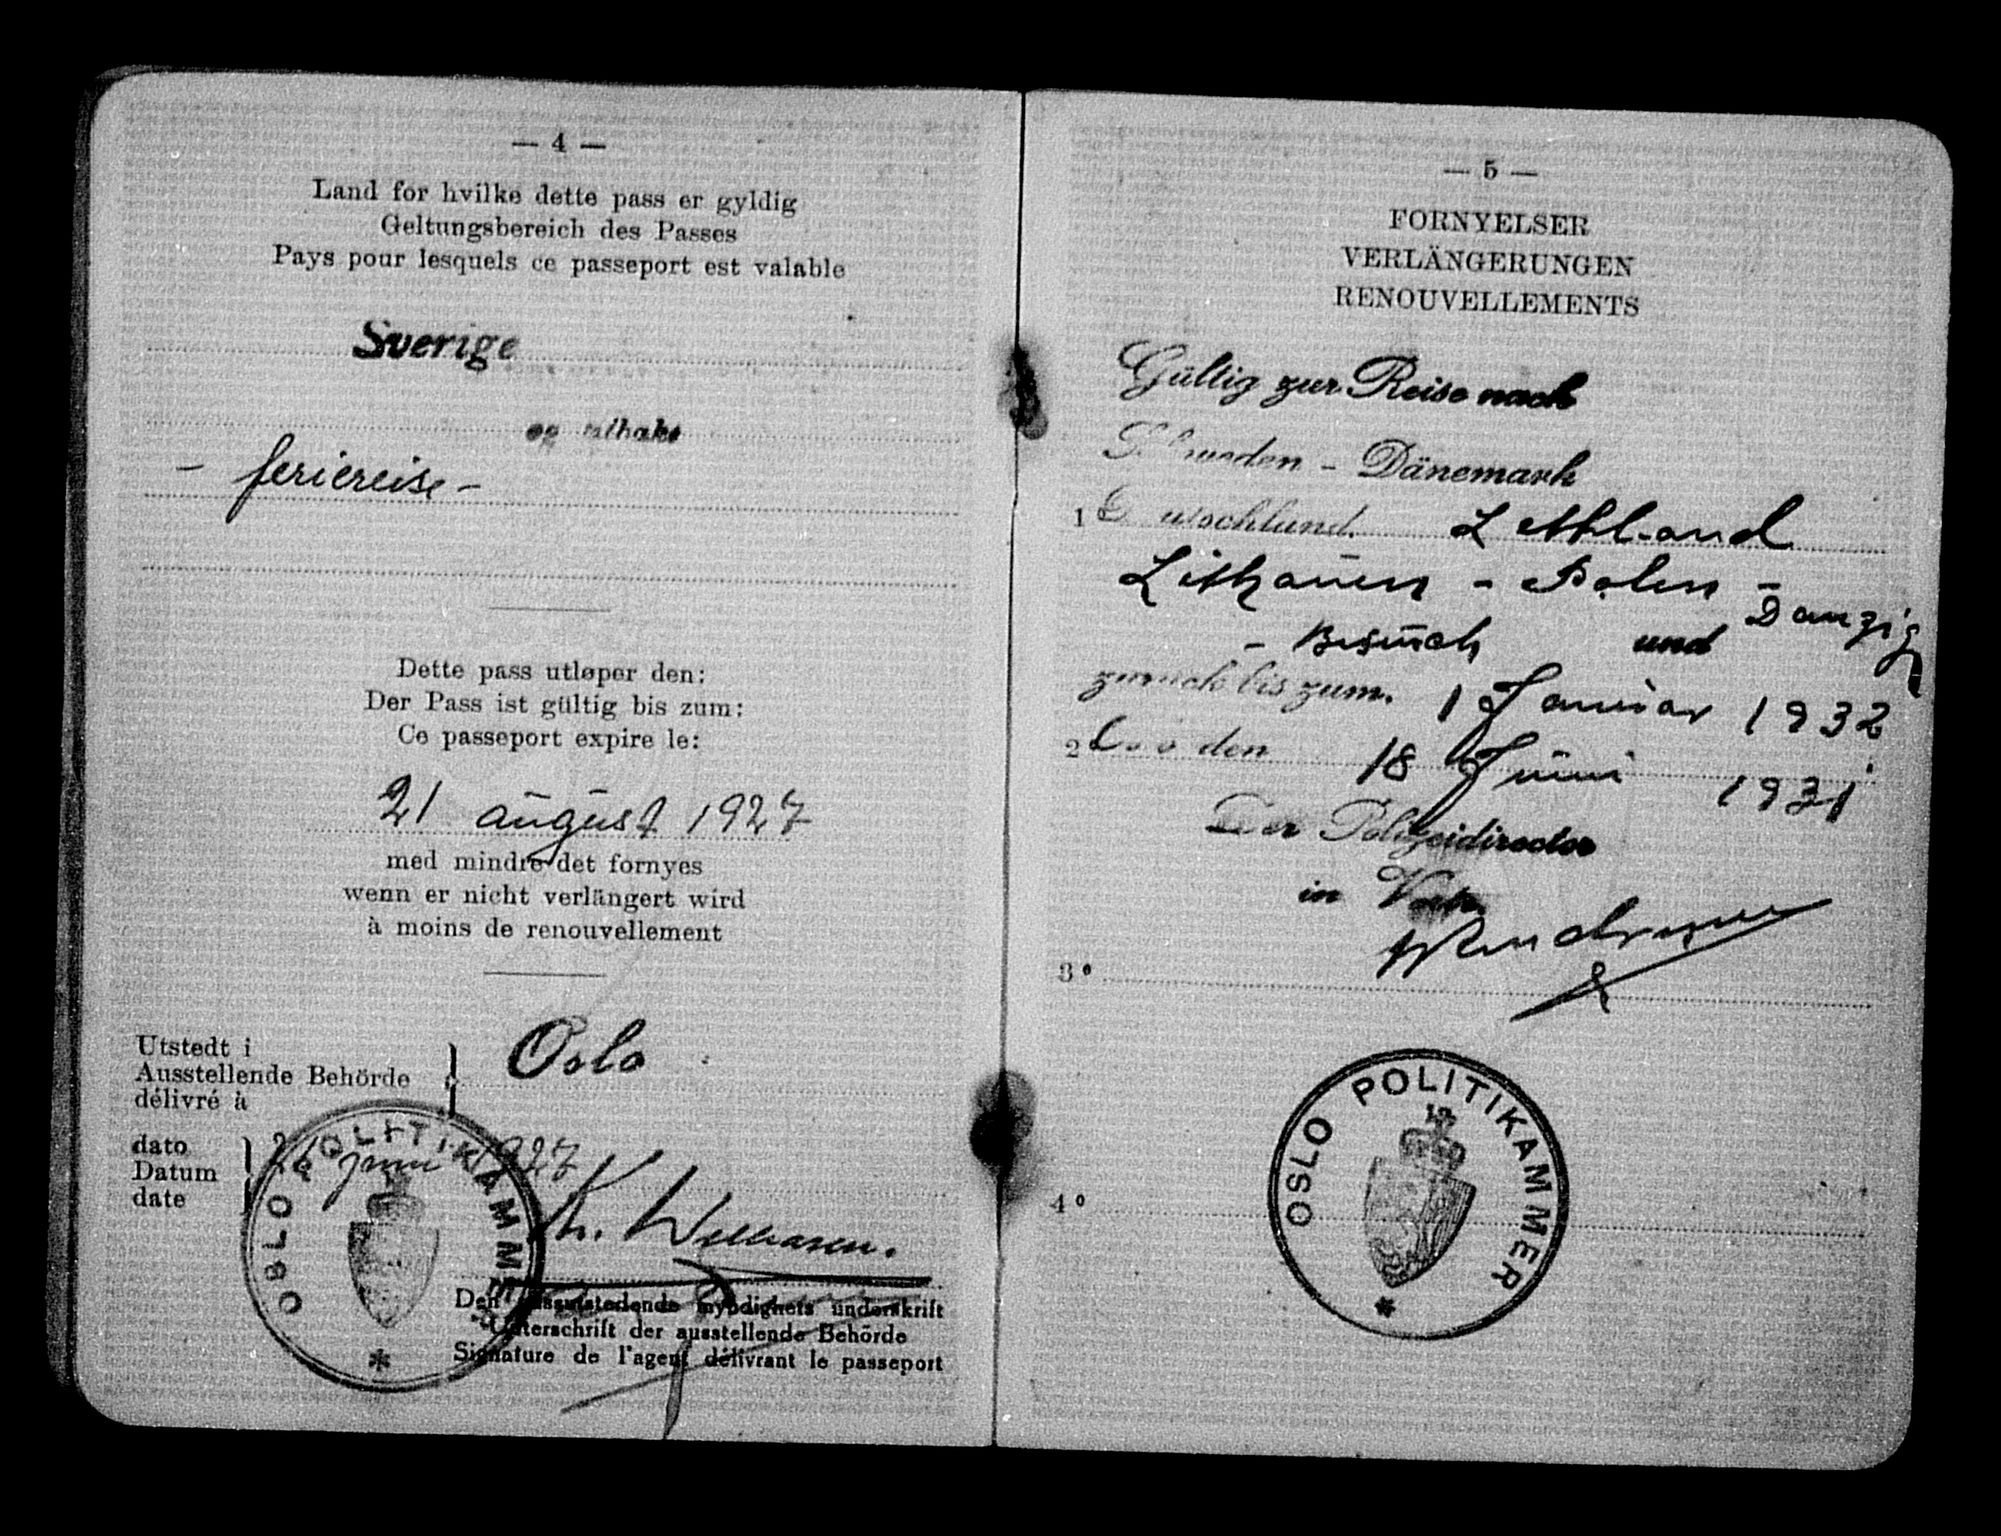 — 4 —
Land for hvilke dette pass er gyldig
Geltungsbereich des Passes
Pays pour lesquels ce passeport est valable
Sverige
og tilbake
- feriereise -
Dette pass utløper den:
Der Pass ist gültig bis zum:
Ce passeport expire le:
21 august 1927
med mindre det fornyes
wenn er nicht verlängert wird
à moins de renouvellement
Utstedt i
Ausstellende Behörde
délivré à
Oslo
dato
Datum
date
21 juni 1927
OSLO POLITIKAMMER
Den passutstedende myndighets underskrift
Unterschrift der ausstellende Behörde
Signature de l'agent délivrant le passeport
— 5 —
FORNYELSER
VERLÄNGERUNGEN
RENOUVELLEMENTS
Gültig zur Reise nach
Schweden - Dänemark
1° Deutschland. Lettland
Lithauen - Polen -
Danzig
- Besuch und
zurück bis zum. 1 Januar 1932
2° Oslo den 18 Juni 1931
Der Polizeidirector
in Vertr.
3°
4°
OSLO POLITIKAMMER